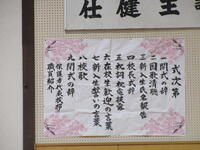 任健主
式次第
一 開式の辞
二 国歌斉唱
三 新入生氏名報告
四 校長式辞
五 祝詞・祝電披露
六 在校生歓迎の言葉
七 新入生誓いの言葉
八 校歌
九 閉式の辞
保護者代表挨拶
職員紹介